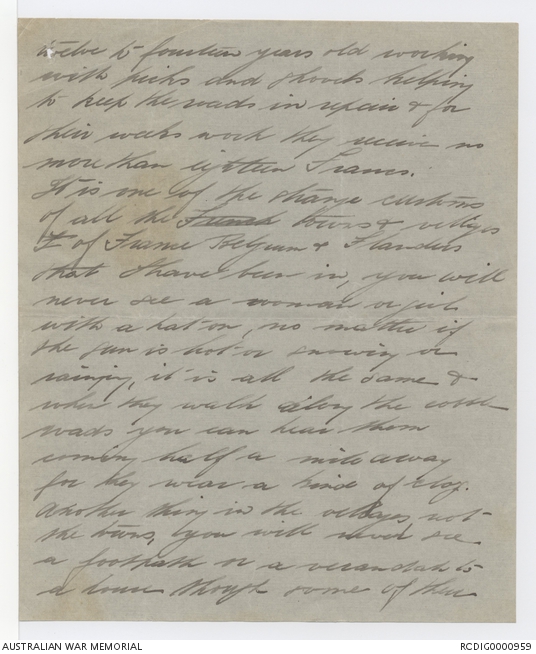 twelve to fourteen years old working
with picks and shovels helping
to keep the roads in repair & for
their weeks work they receive no
more than eighteen Francs.
It is one of the strange customs
of all the French towns & villiges
F of France Belgium & Flanders
that I have been in, you will
never see a woman or girl
with a hat on, no matter if
the sun is hot or snowing or
raining, it is all the same &
when they walk along the cobble
roads you can hear them
coming half a mile away
for they wear a kind of clog.
Another thing in the villages, not
the towns, you will never see
a footpath or a verandah to
a house though some of them
AUSTRALIAN WAR MEMORIAL
RCDIG0000959